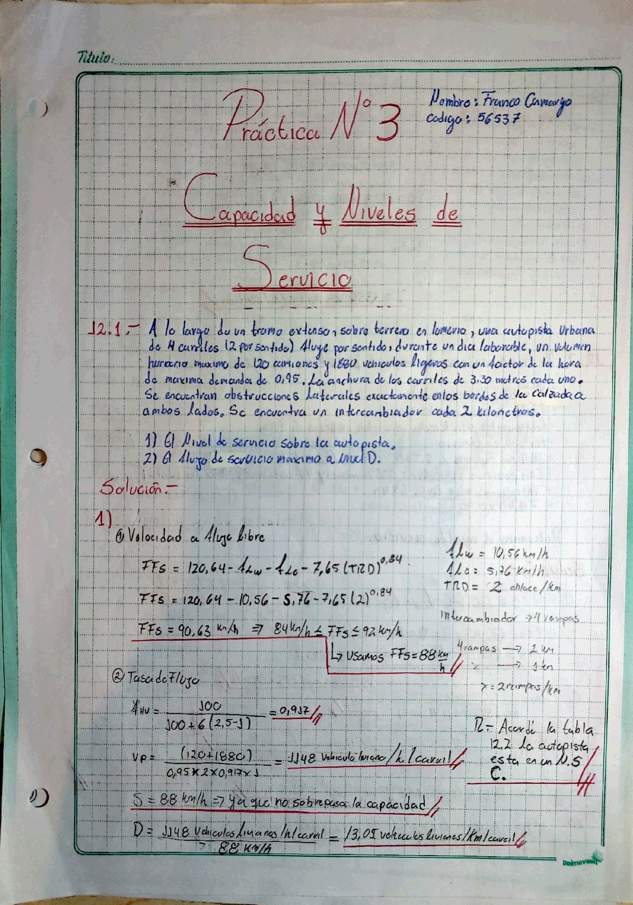 Titulo:
Práctica N°3
Nombre: Franco Camargo
codigo: 56537
Capacidad y Niveles de
Servicio
12.1.- A lo largo de un tramo extenso, sobre terreno en lomerio, una autopista Urbana
de 4 carriles (2 por sentido) fluye por sentido, durante un dia laborable, un volumen
horario maximo de 120 camiones y 1880 vehiculos ligeros con un factor de la hora
de maxima demanda de 0,95. La anchura de los carriles de 3.30 metros cada uno.
Se encuentran obstrucciones laterales exactamente en los bordes de la calzada a
ambos lados. Se encuentra un intercambiador cada 2 kilometros.
1) El Nivel de servicio sobre la autopista.
2) El flujo de servicio máximo a nivel D.
Solución.-
1)
① Velocidad a flujo libre
FFS = 120,64 - fLW - fLC - 7,65 (TRD)^0,84
FFS = 120,64 - 10,56 - 5,76 - 7,65 (2)^0,84
FFS = 90,63 km/h ⇒ 84 km/h ≤ FFS ≤ 92 km/h
↳ Usamos FFS = 88 km/h
fLW = 10,56 km/h
fLC = 5,76 km/h
TRD = 2 enlace/km
Intercambiador → 4 rampas
4 rampas → 2 km
x → 1 km
x = 2 rampas/km
② Tasa de Flujo
fHV = 100 / (100 + 6 (2,5 - 1)) = 0,917
VP = (120 + 1880) / (0,95 x 2 x 0,917 x 1) = 1148 vehiculo liviano/h/carril
S = 88 km/h ⇒ ya que no sobrepasa la capacidad
D = 1148 vehiculos livianos/h/carril / 88 km/h = 13,05 vehiculos livianos/km/carril
R.- Acorde la tabla
12.2 la autopista
esta en un N.S
C.